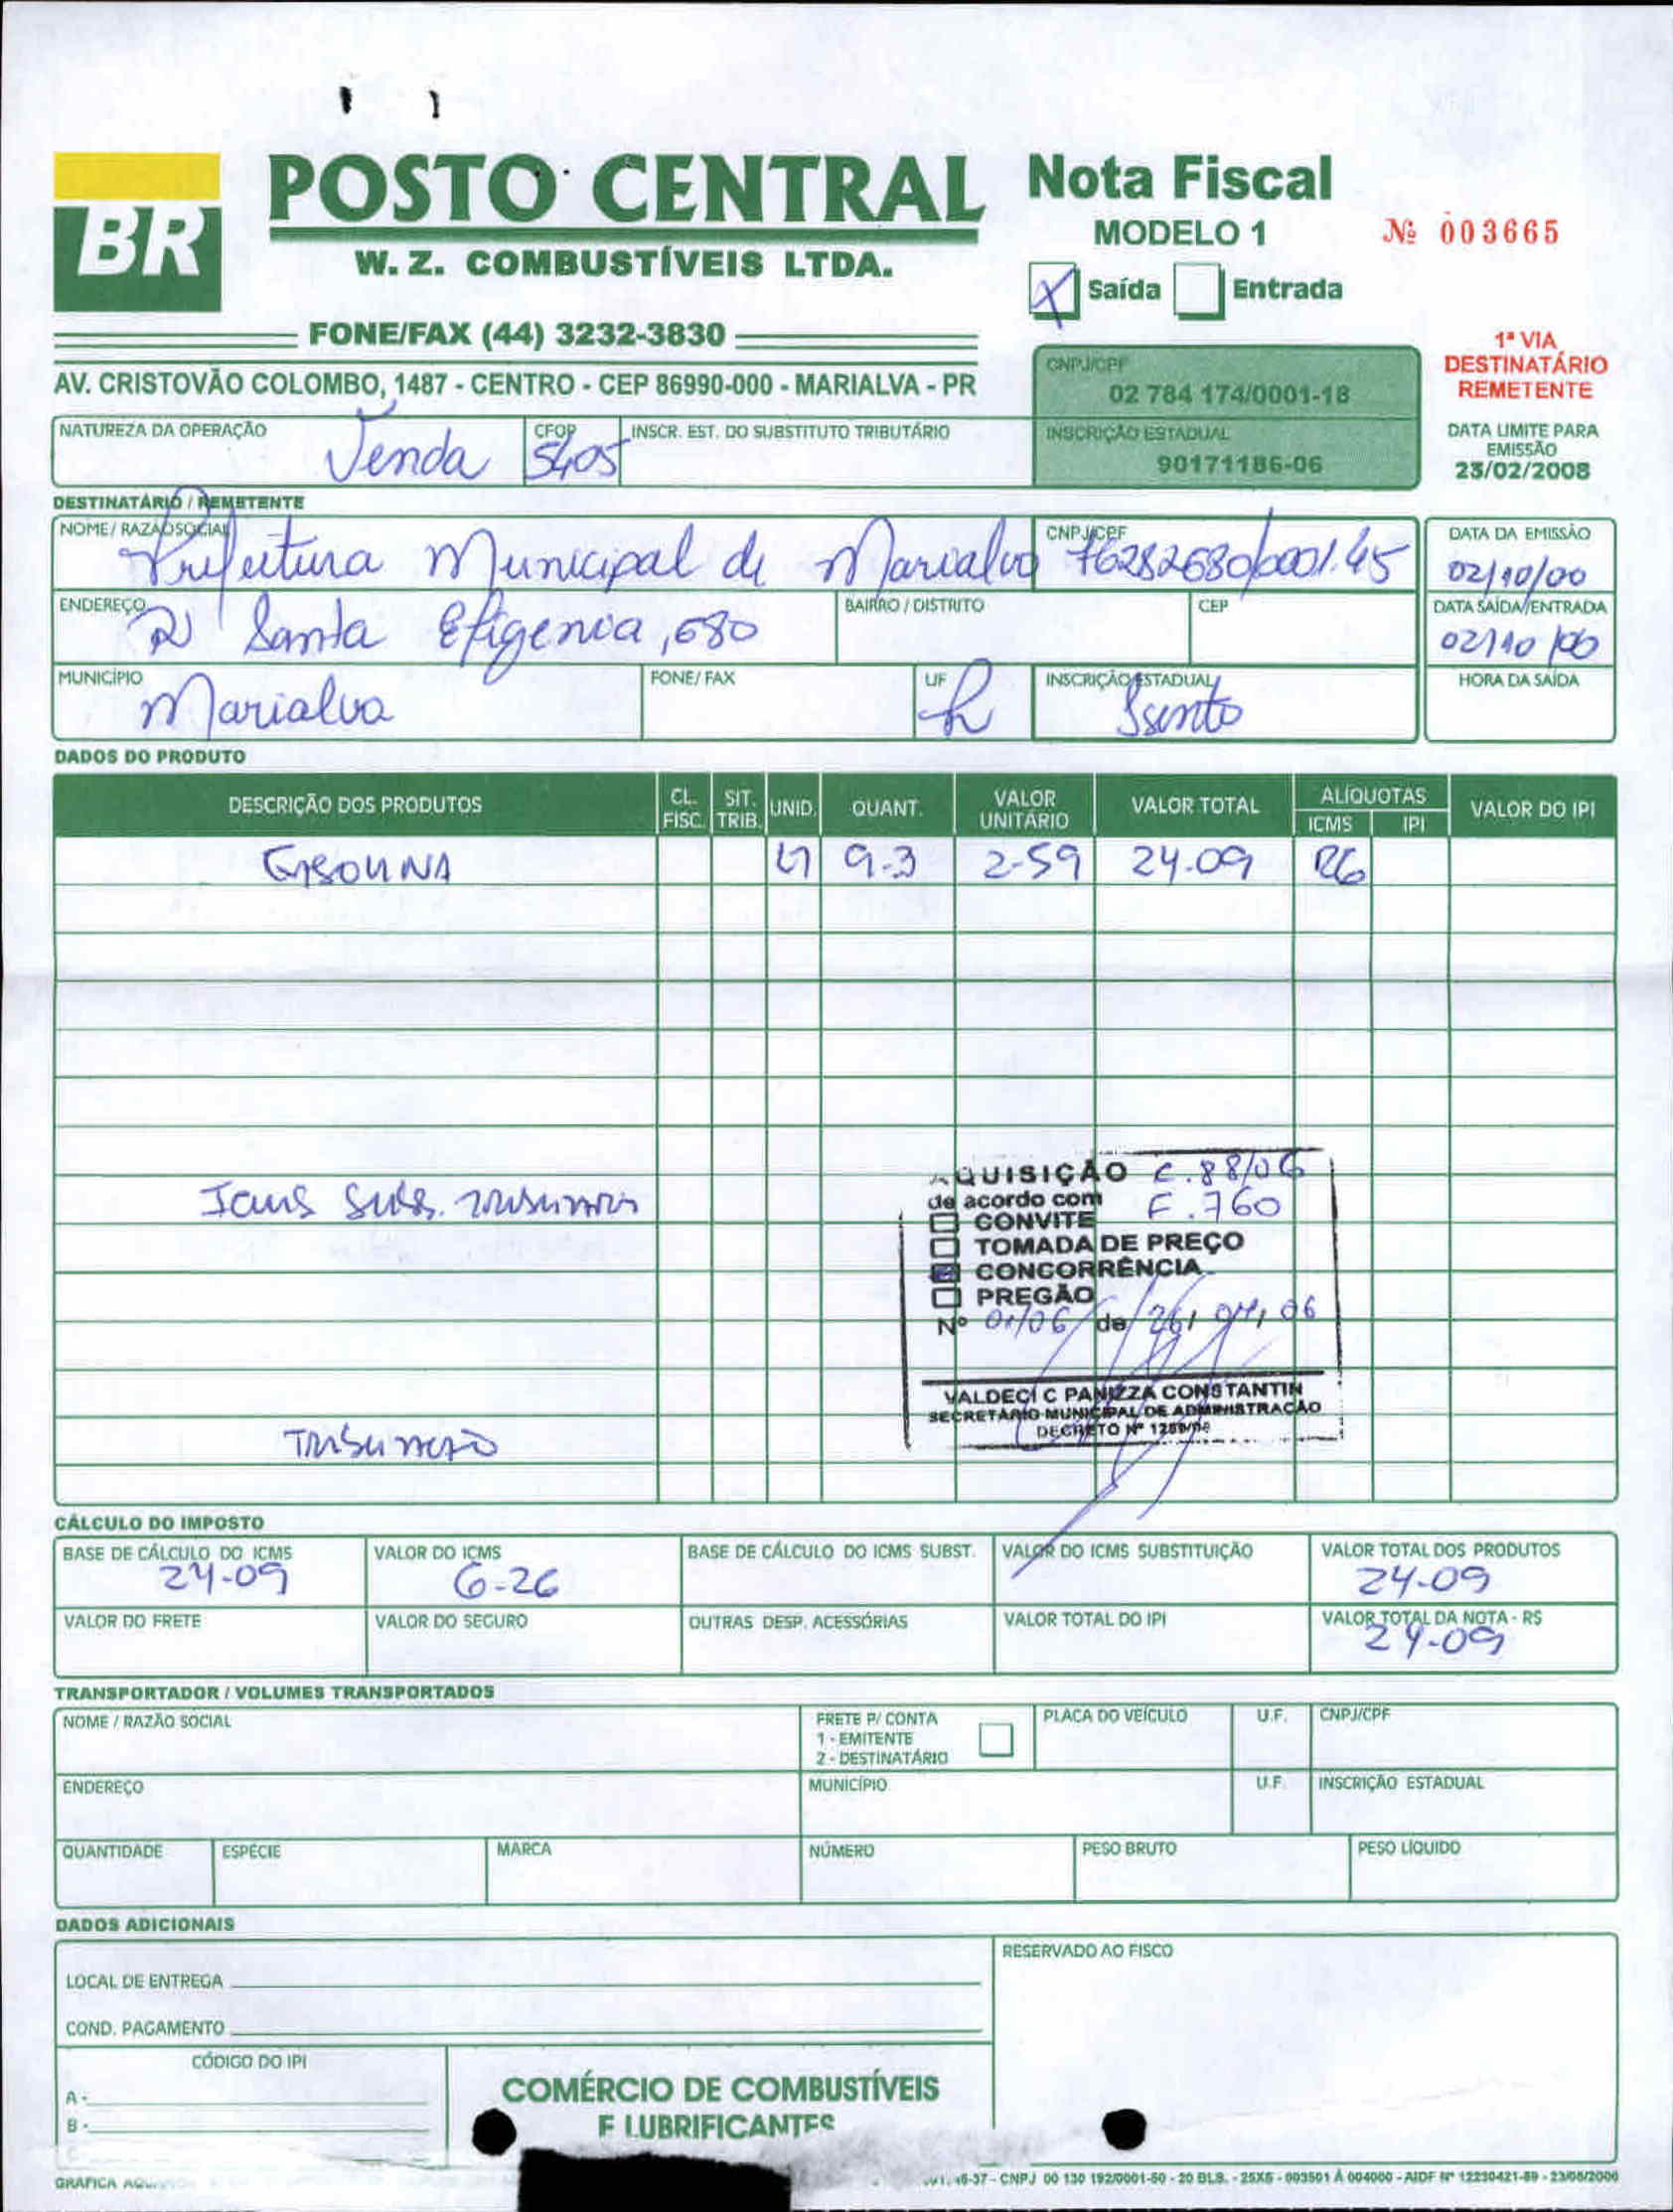 BR
POSTO CENTRAL
W. Z. COMBUSTÍVEIS LTDA.
FONE/FAX (44) 3232-3830
AV. CRISTOVÃO COLOMBO, 1487 - CENTRO - CEP 86990-000 - MARIALVA - PR
Nota Fiscal
MODELO 1
Nº 003665
X Saída Entrada
1ª VIA
DESTINATÁRIO
REMETENTE
CNPJ/CPF
02 784 174/0001-18
INSCRIÇÃO ESTADUAL
90171186-06
DATA LIMITE PARA
EMISSÃO
23/02/2008
NATUREZA DA OPERAÇÃO Venda
CFOP 5405
INSCR. EST. DO SUBSTITUTO TRIBUTÁRIO
DESTINATÁRIO / REMETENTE
NOME / RAZÃO SOCIAL
Prefeitura Municipal de Marialva
CNPJ/CPF
76282680/0001.45
DATA DA EMISSÃO
02/10/06
ENDEREÇO
R Santa Efigenia, 680
BAIRRO / DISTRITO
CEP
DATA SAÍDA/ENTRADA
02/10/06
MUNICÍPIO
Marialva
FONE / FAX
UF
INSCRIÇÃO ESTADUAL
Isento
HORA DA SAÍDA
DADOS DO PRODUTO
DESCRIÇÃO DOS PRODUTOS CL. FISC. SIT. TRIB. UNID. QUANT. VALOR UNITÁRIO VALOR TOTAL ALÍQUOTAS ICMS IPI VALOR DO IPI
GASOLINA LT 9.3 2-59 24.09 26
AQUISIÇÃO C.88/06
de acordo com F.760
CONVITE
TOMADA DE PREÇO
CONCORRÊNCIA
PREGÃO
Nº 01/06 de 26, 04, 06
VALDECI C PANIZZA CONSTANTIN
SECRETARIO MUNICIPAL DE ADMINISTRAÇÃO
DECRETO Nº
Icms Subs.
CÁLCULO DO IMPOSTO
BASE DE CÁLCULO DO ICMS
24-09
VALOR DO ICMS
6-26
BASE DE CÁLCULO DO ICMS SUBST.
VALOR DO ICMS SUBSTITUIÇÃO
VALOR TOTAL DOS PRODUTOS
24-09
VALOR DO FRETE
VALOR DO SEGURO
OUTRAS DESP. ACESSÓRIAS
VALOR TOTAL DO IPI
VALOR TOTAL DA NOTA - R$
24-09
TRANSPORTADOR / VOLUMES TRANSPORTADOS
NOME / RAZÃO SOCIAL
FRETE P/ CONTA
1 - EMITENTE
2 - DESTINATÁRIO
PLACA DO VEÍCULO
U.F.
CNPJ/CPF
ENDEREÇO
MUNICÍPIO
U.F.
INSCRIÇÃO ESTADUAL
QUANTIDADE
ESPÉCIE
MARCA
NÚMERO
PESO BRUTO
PESO LÍQUIDO
DADOS ADICIONAIS
LOCAL DE ENTREGA
COND. PAGAMENTO
RESERVADO AO FISCO
CÓDIGO DO IPI
A -
B -
C
COMÉRCIO DE COMBUSTÍVEIS
E LUBRIFICANTES
GRAFICA
CNPJ 00 130 192/0001-50 - 20 BLS. - 25X5 - 003501 À 004000 - AIDF Nº 12230421-89 - 23/08/2006